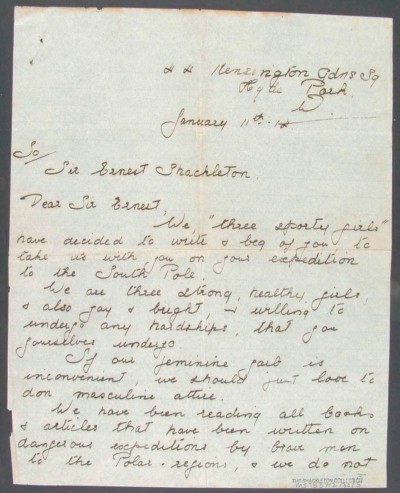 44 Kensington Gdns Sq
Hyde Park
W.
January 11th. 14
To/
Sir Ernest Shackleton.
Dear Sir Ernest,
We, "three sporty girls"
have decided to write & beg of you to
take us with you on your expedition
to the South Pole.
We are three strong, healthy girls,
& also gay & bright, & willing to
undergo any hardships, that you
yourselves undergo.
If our feminine garb is
inconvenient, we should just love to
don masculine attire.
We have been reading all books
& articles that have been written on
dangerous expeditions by brave men
to the Polar-regions, & we do not